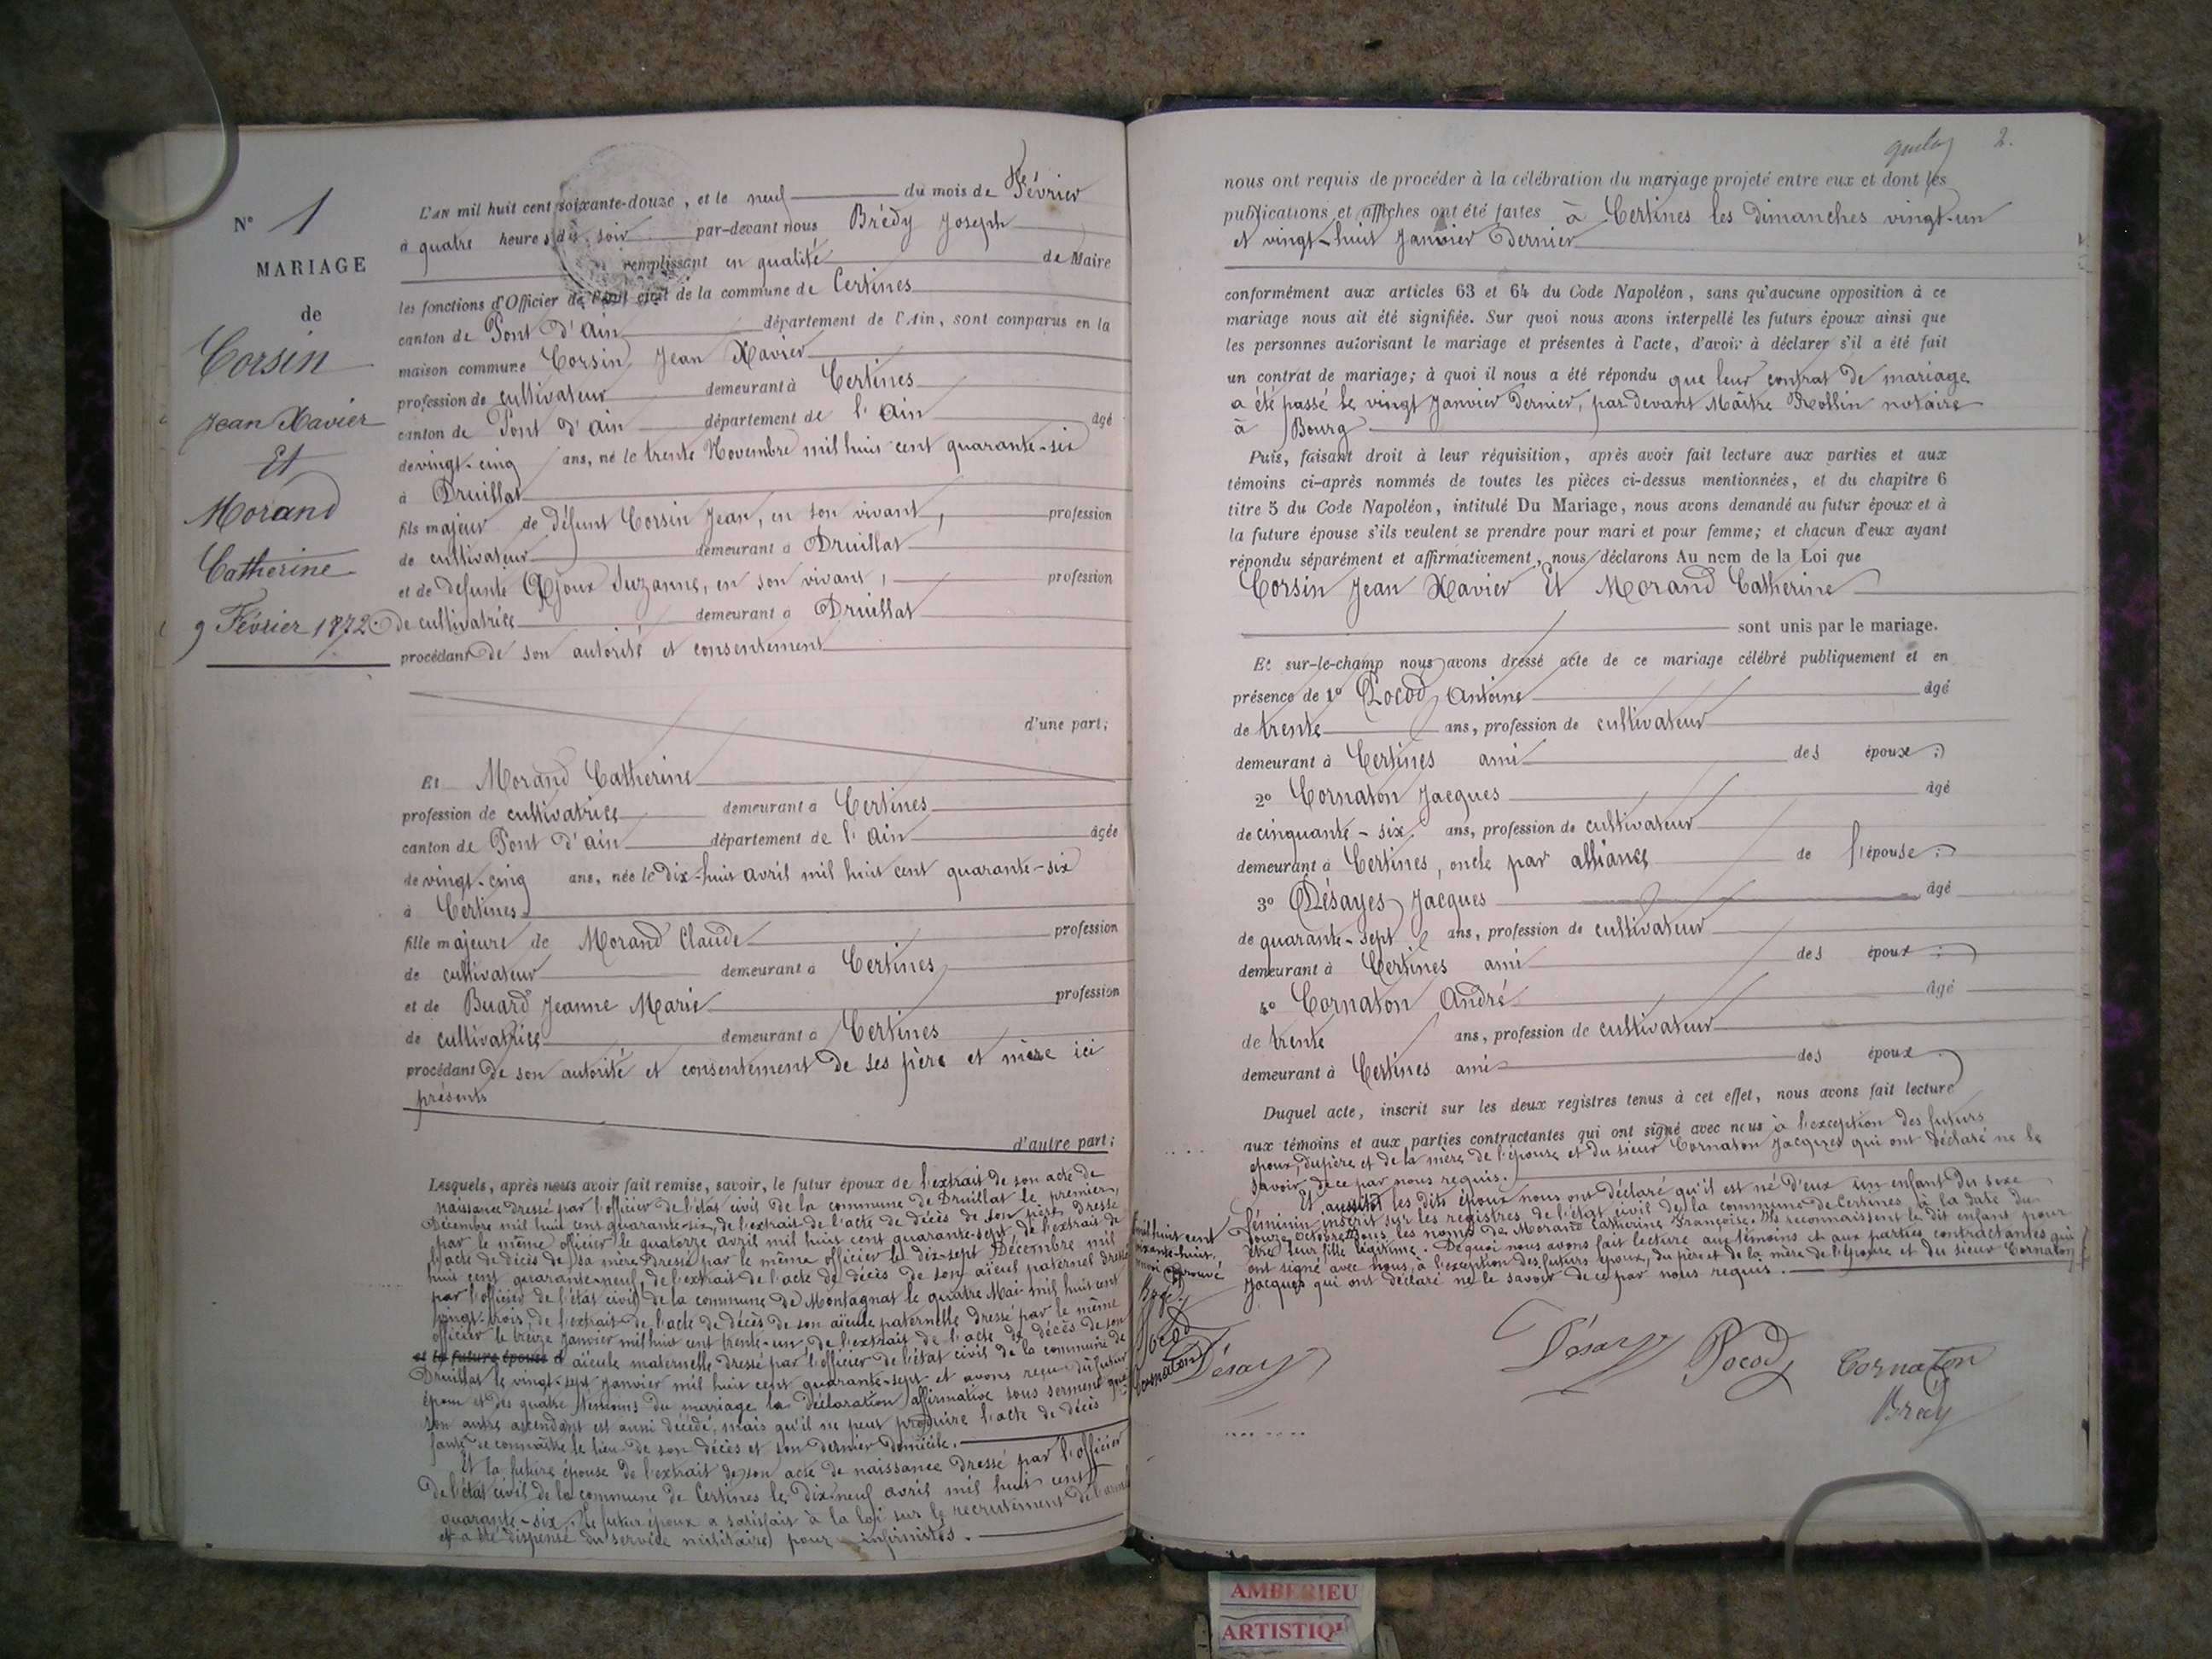 N° 1
MARIAGE
de
Corsin
Jean Xavier
Et
Morand
Catherine
9 Février 1872
L'AN mil huit cent soixante-douze, et le neuf du mois de Février
à quatre heures du soir par-devant nous Brédy Joseph
remplissant en qualité de Maire
les fonctions d'Officier de l'état civil de la commune de Certines
canton de Pont d'Ain département de l'Ain, sont comparus en la
maison commune Corsin Jean Xavier
profession de cultivateur demeurant à Certines
canton de Pont d'Ain département de l'Ain âgé
de vingt-cinq ans, né le trente Novembre mil huit cent quarante-six
à Druillat
fils majeur de défunt Corsin Jean, en son vivant, profession
de cultivateur demeurant à Druillat
et de défunte Ajoux Suzanne, en son vivant, profession
de cultivatrice demeurant à Druillat
procédant de son autorité et consentement
d'une part;
Et Morand Catherine
profession de cultivatrice demeurant à Certines
canton de Pont d'Ain département de l'Ain âgée
de vingt-cinq ans, née le dix-huit avril mil huit cent quarante-six
à Certines
fille majeure de Morand Claude profession
de cultivateur demeurant à Certines
et de Buard Jeanne Marie profession
de cultivatrice demeurant à Certines
procédant de son autorité et consentement de ses père et mère ici
présents
d'autre part;
Lesquels, après nous avoir fait remise, savoir, le futur époux de l'extrait de son acte de
naissance dressé par l'officier de l'état civil de la commune de Druillat le premier
Décembre mil huit cent quarante-six, de l'extrait de l'acte de décès de son père dressé
par le même officier le quatorze avril mil huit cent quarante-sept de l'extrait de
l'acte de décès de sa mère dressé par le même officier le dix-sept Décembre mil
huit cent quarante-neuf, de l'extrait de l'acte de décès de son aïeul paternel dressé
par l'officier de l'état civil de la commune de Montagnat le quatre Mai mil huit cent
vingt-trois, de l'extrait de l'acte de décès de son aïeule paternelle dressé par le même
officier le treize Janvier mil huit cent trente-un de l'extrait de l'acte de décès de son
et la future épouse d aïeule maternelle dressé par l'officier de l'état civil de la commune de
Druillat le vingt-sept Janvier mil huit cent quarante-sept et avons reçu du futur
époux et des quatre témoins du mariage la déclaration affirmative sous serment que
son autre ascendant est aussi décédé, mais qu'il ne peut produire l'acte de décès
faute de connaître le lieu de son décès et son dernier domicile.
Et la future épouse de l'extrait de son acte de naissance dressé par l'officier
de l'état civil de la commune de Certines le dix-neuf avril mil huit cent
quarante-six. Le futur époux a satisfait à la loi sur le recrutement de l'armée
et a été dispensé du service militaire pour infirmités.
2.
nous ont requis de procéder à la célébration du mariage projeté entre eux et dont les
publications et affiches ont été faites à Certines les dimanches vingt-un
et vingt-huit Janvier Dernier
conformément aux articles 63 et 64 du Code Napoléon, sans qu'aucune opposition à ce
mariage nous ait été signifiée. Sur quoi nous avons interpellé les futurs époux ainsi que
les personnes autorisant le mariage et présentes à l'acte, d'avoir à déclarer s'il a été fait
un contrat de mariage; à quoi il nous a été répondu que leur contrat de mariage
a été passé le vingt Janvier dernier, par devant Maître Rollin notaire
à Bourg
Puis, faisant droit à leur réquisition, après avoir fait lecture aux parties et aux
témoins ci-après nommés de toutes les pièces ci-dessus mentionnées, et du chapitre 6
titre 5 du Code Napoléon, intitulé Du Mariage, nous avons demandé au futur époux et à
la future épouse s'ils veulent se prendre pour mari et pour femme; et chacun d'eux ayant
répondu séparément et affirmativement, nous déclarons Au nom de la Loi que
Corsin Jean Xavier Et Morand Catherine
sont unis par le mariage.
Et sur-le-champ nous avons dressé acte de ce mariage célébré publiquement et en
présence de 1° Pocod Antoine âgé
de trente ans, profession de cultivateur
demeurant à Certines ami des époux;
2° Cornaton Jacques âgé
de cinquante-six ans, profession de cultivateur
demeurant à Certines, oncle par alliance de l'épouse;
3° Désayes Jacques âgé
de quarante-sept ans, profession de cultivateur
demeurant à Certines ami des époux;
4° Cornaton André âgé
de trente ans, profession de cultivateur
demeurant à Certines ami des époux
Duquel acte, inscrit sur les deux registres tenus à cet effet, nous avons fait lecture
aux témoins et aux parties contractantes qui ont signé avec nous à l'exception des futurs
époux, du père et de la mère de l'épouse et du sieur Cornaton Jacques qui ont déclaré ne le
savoir de ce par nous requis.
Et aussitôt les dits époux nous ont déclaré qu'il est né d'eux un enfant du sexe
féminin inscrit sur les registres de l'état civil de la commune de Certines à la date du
douze octobre sous les noms de Morand Catherine Françoise. Ils reconnaissent le dit enfant pour
être leur fille légitime. De quoi nous avons fait lecture aux témoins et aux parties contractantes qui
ont signé avec nous, à l'exception des futurs époux, du père et de la mère de l'épouse et du sieur Cornaton
Jacques qui ont déclaré ne le savoir de ce par nous requis.
mil huit cent
soixante-huit.
approuvé
Pocod
Cornaton
Désayes
Désayes Pocod Cornaton
Brédy
AMBERIEU
ARTISTIQ